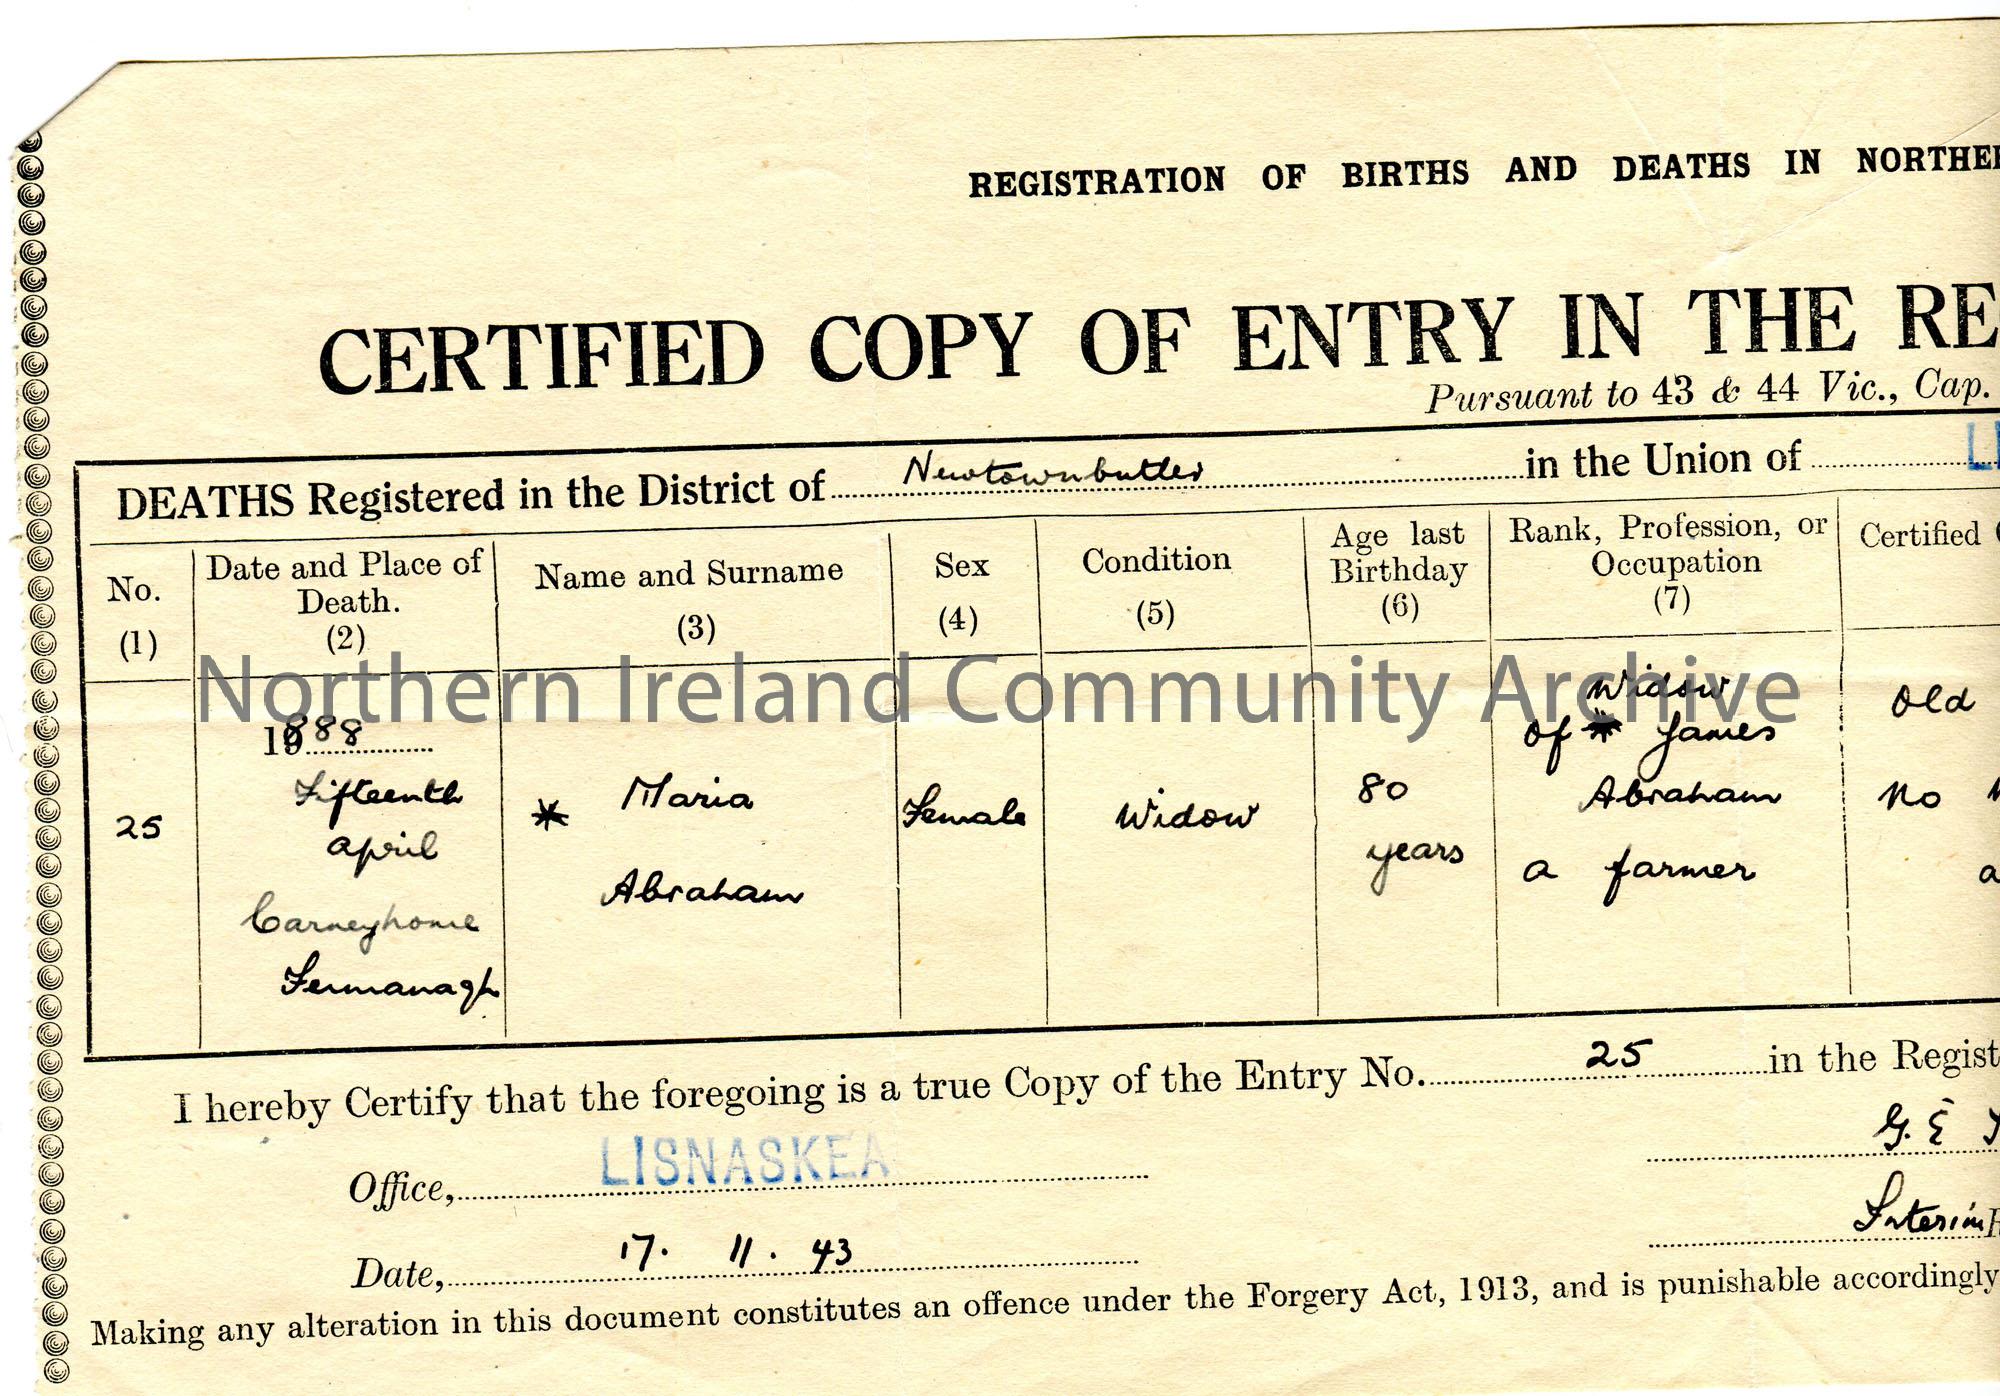 REGISTRATION OF BIRTHS AND DEATHS IN NORTHER
CERTIFIED COPY OF ENTRY IN THE RE
Pursuant to 43 & 44 Vic., Cap.
DEATHS Registered in the District of Newtownbutler in the Union of LI
No.
(1)
Date and Place of
Death.
(2)
Name and Surname
(3)
Sex
(4)
Condition
(5)
Age last
Birthday
(6)
Rank, Profession, or
Occupation
(7)
Certified
25
1888
Fifteenth
April
Carneyhome
Fermanagh
* Maria
Abraham
Female
Widow
80
years
Widow
of * James
Abraham
a farmer
Old
No
a
Northern Ireland Community Archive
I hereby Certify that the foregoing is a true Copy of the Entry No. 25 in the Regist
G. E
Office, LISNASKEA
Interim R
Date, 17. 11. 43
Making any alteration in this document constitutes an offence under the Forgery Act, 1913, and is punishable accordingly